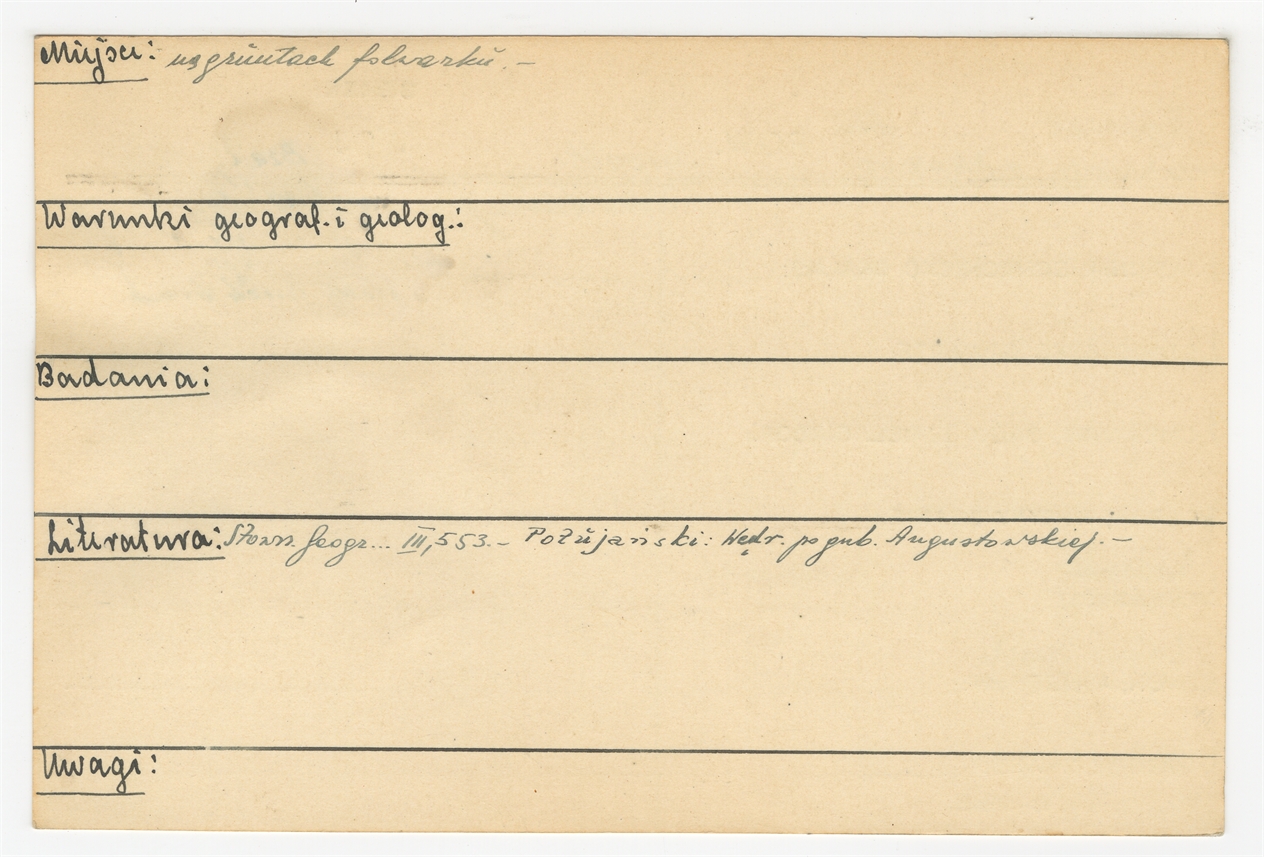 Miejsce: na gruntach folwarku. –
Warunki geograf. i geolog.:
Badania:
Literatura: Słown. Geogr... III, 553. – Połujański: Wędr. po gub. Augustowskiej. –
Uwagi: